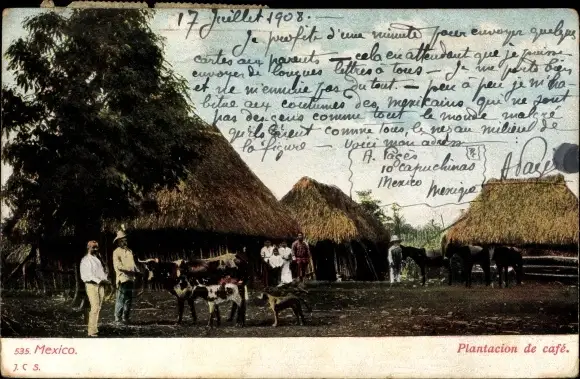 17 Juillet 1908. -
Je profit d'une minute pour envoyer quelques
cartes aux parents - cela en attendant que je puisse
envoyer de longues lettres à tous - Je me porte bien
et ne m'ennuie pas du tout - peu à peu je m'ha
bitue aux coutumes des mexicains qui ne sont
pas des gens comme tout le monde malgré
qu'ils aient comme tous, le nez au milieu de
la figure - Voici mon adresse
A. Pagès
10 Capuchinas
Mexico Mexique
A Pagès
535. Mexico.
Plantacion de café.
J. C. S.